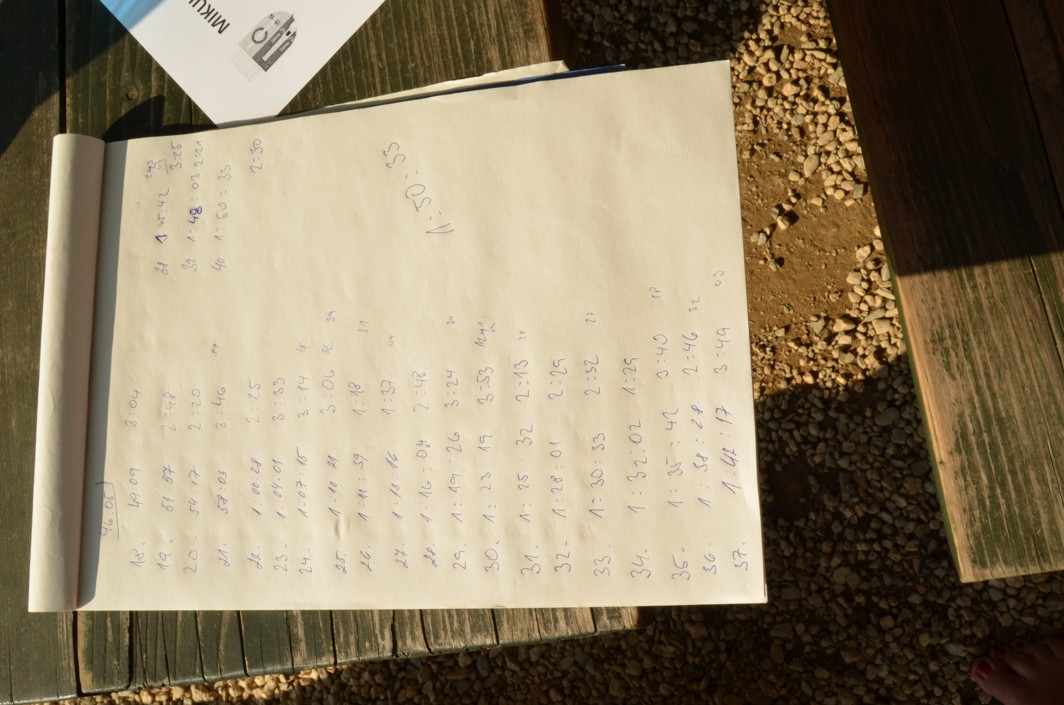 MIKU
46:05
18. 49:09 3:04
19. 51:57 2:48
20. 54:17 2:20
21. 58:03 3:46
22. 1:00:28 2:25
23. 1:04:01 3:33
24. 1:07:15 3:14
25. 1:10:21 3:06
26. 1:11:39 1:18
27. 1:13:16 1:37
28. 1:16:04 2:48
29. 1:19:26 3:24
30. 1:23 19 3:53
31. 1:25 32 2:13
32. 1:28:01 2:29
33. 1:30:33 2:32
34. 1:32:02 1:29
35. 1:35:42 3:40
36. 1:38:28 2:46
37. 1:42:17 3:49
38 1 45:42 3:25
39 1:48:03 2:21
40 1:50:33 2:30
1:50:33